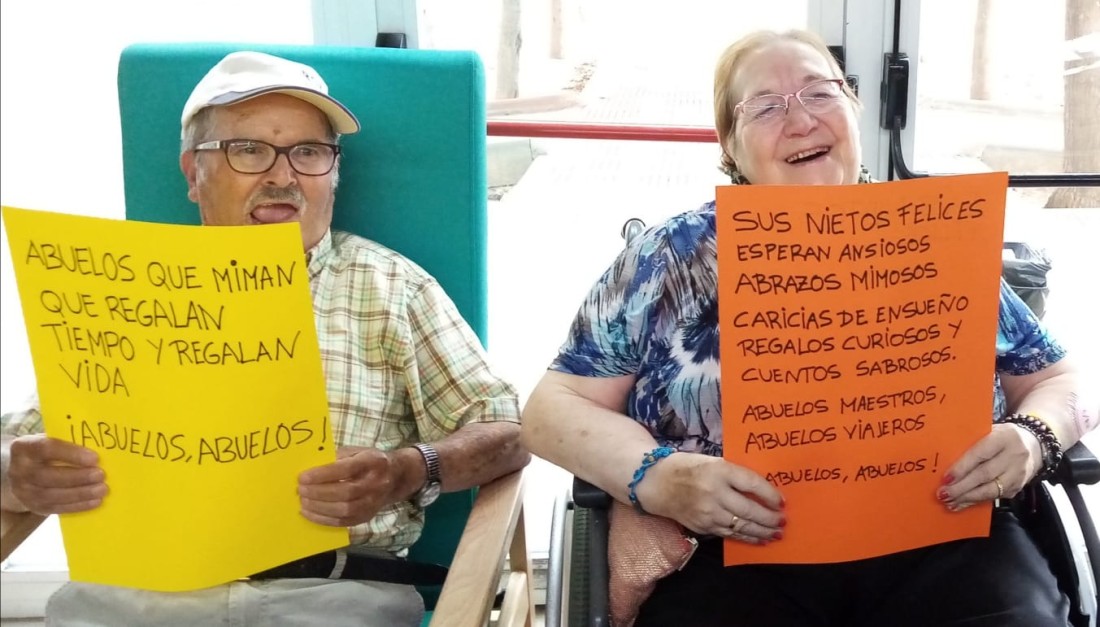 ABUELOS QUE MIMAN
QUE REGALAN
TIEMPO Y REGALAN
VIDA
¡ABUELOS, ABUELOS!
SUS NIETOS FELICES
ESPERAN ANSIOSOS
ABRAZOS MIMOSOS
CARICIAS DE ENSUEÑO
REGALOS CURIOSOS Y
CUENTOS SABROSOS.
ABUELOS MAESTROS,
ABUELOS VIAJEROS
ABUELOS, ABUELOS!